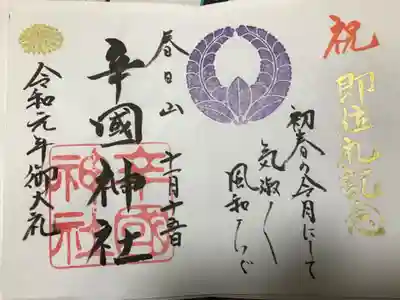 祝
即位礼記念
初春の令月にして
気淑く
風和らぐ
春日山
十一月十五日
辛國神社
辛國神社
令和元年御大礼